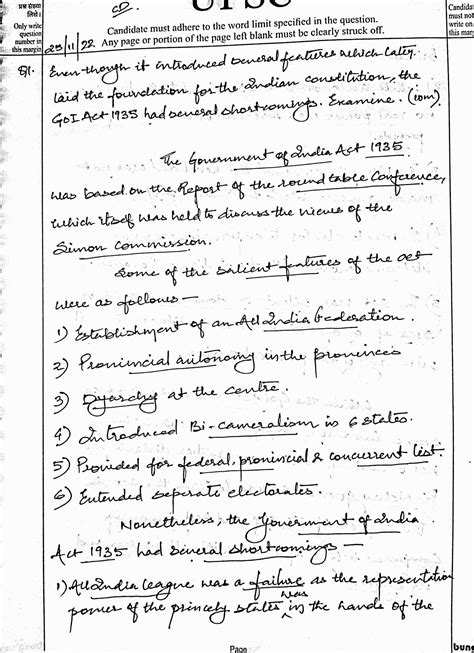 प्रश्न संख्या
लिखें।
Only write
question
number in
this margin
UPSC
Candidate must adhere to the word limit specified in the question.
Any page or portion of the page left blank must be clearly struck off.
Candida
must not
write on
this mar
25/11/22
Q1.
Even though it introduced several features which later
laid the foundation for the Indian constitution, the
GoI Act 1935 had several shortcomings. Examine. (10m)
The Government of India Act 1935
was based on the Report of the round table Conference,
which itself was held to discuss the views of the
Simon Commission.
Some of the salient features of the act
were as follows —
1) Establishment of an All India Federation.
2) Provincial autonomy in the provinces
3) Dyarchy at the centre.
4) Introduced Bi-cameralism in 6 states.
5) Provided for federal, provincial & concurrent list.
6) Extended seperate electorates.
Nonetheless, the Government of India
Act 1935 had several shortcomings —
1) All India league was a failure as the representation
power of the princely states was in the hands of the
Page